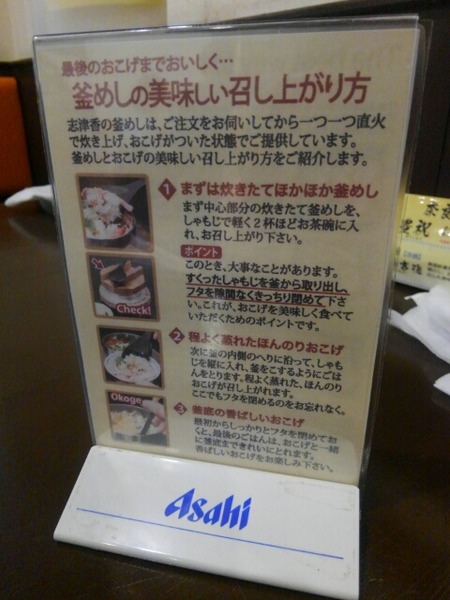 最後のおこげまでおいしく…
釜めしの美味しい召し上がり方
志津香の釜めしは、ご注文をお伺いしてから一つ一つ直火
で炊き上げ、おこげがついた状態でご提供しています。
釜めしとおこげの美味しい召し上がり方をご紹介します。
1 まずは炊きたてほかほか釜めし
まず中心部分の炊きたて釜めしを、
しゃもじで軽く2杯ほどお茶碗に入
れ、お召し上がり下さい。
ポイント
このとき、大事なことがあります。
すくったしゃもじを釜から取り出し、
フタを隙間なくきっちり閉めて下
さい。これが、おこげを美味しく食べて
いただくためのポイントです。
Check!
2 程よく蒸れたほんのりおこげ
次に釜の内側のへりに沿って、しゃも
じを縦に入れ、釜をこするようにごは
んをとります。程よく蒸れた、ほんのり
おこげが召し上がれます。
ここでもフタを閉めるのをお忘れなく。
Okoge
3 釜底の香ばしいおこげ
最初からしっかりとフタを閉めてお
くと、最後のごはんは、おこげと一緒
に釜底まできれいにとれます。
香ばしいおこげをお楽しみ下さい。
Asahi